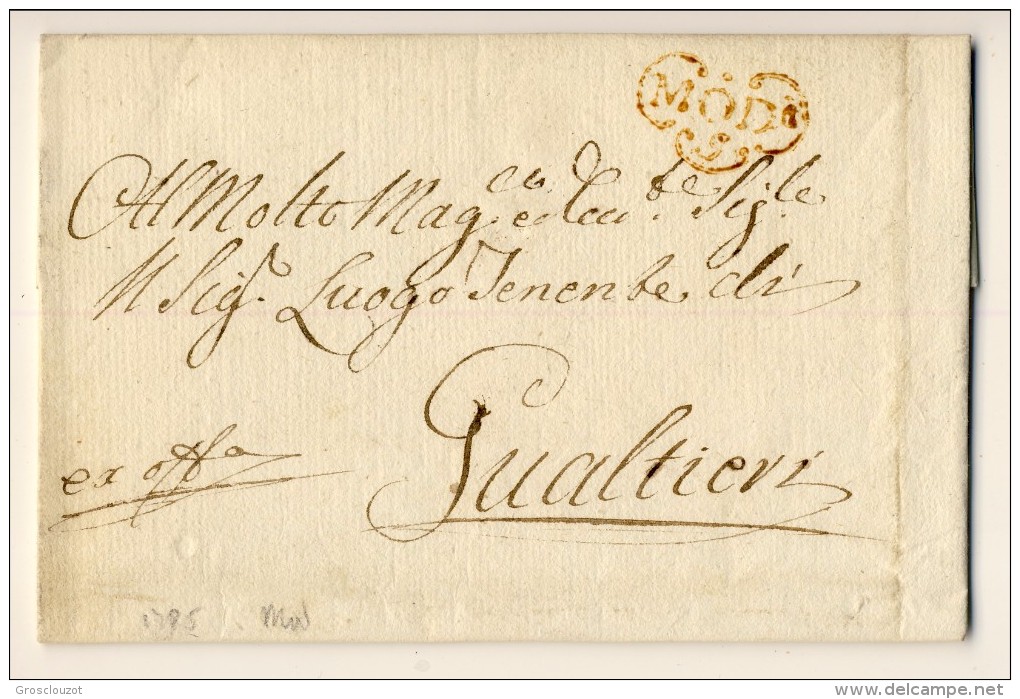 MOD.ª
Al Molto Mag.co ed Ecc.te Sig.le
Il Sig.r Luogo Tenente di
Gualtieri
ex off.o
1795 Mod
Grosclouzot
www.delcampe.net